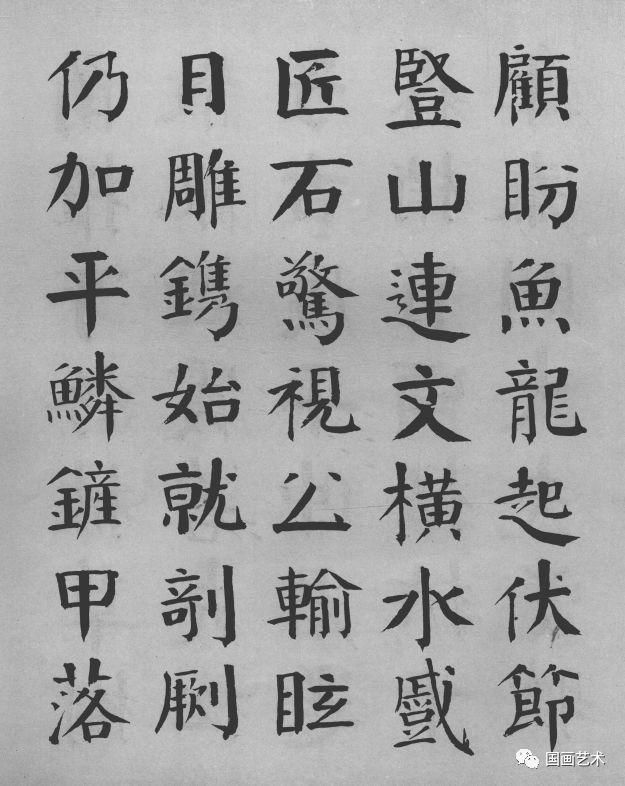 顧盼魚龍起伏節
豎山連文橫水蹙
匠石驚視公輸眩
目雕鐫始就剞劂
仍加平鱗鏟甲落
国画艺术